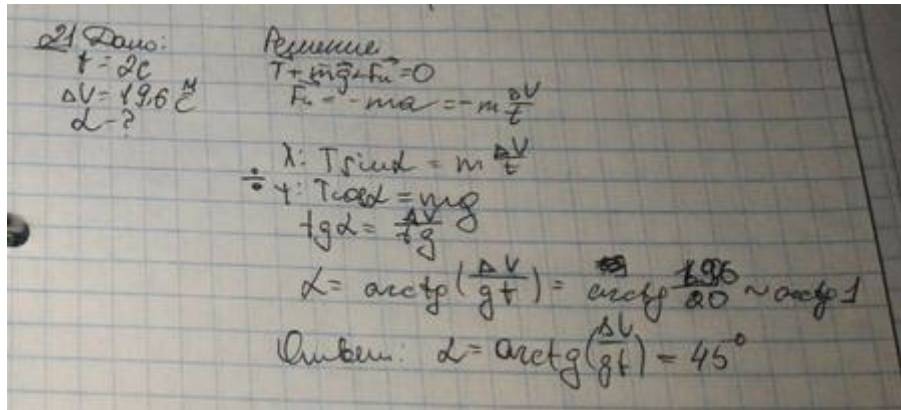 21 Дано:
t = 2c
ΔV = 19,6 м/с
α - ?
Решение
T + mg + Fи = 0
Fи = -ma = -m ΔV/t
x: T sinα = m ΔV/t
÷ y: T cosα = mg
tgα = ΔV/tg
α = arctg(ΔV/gt) = arctg 19,6/20 ~ arctg 1
Ответ: α = arctg(ΔV/gt) = 45°